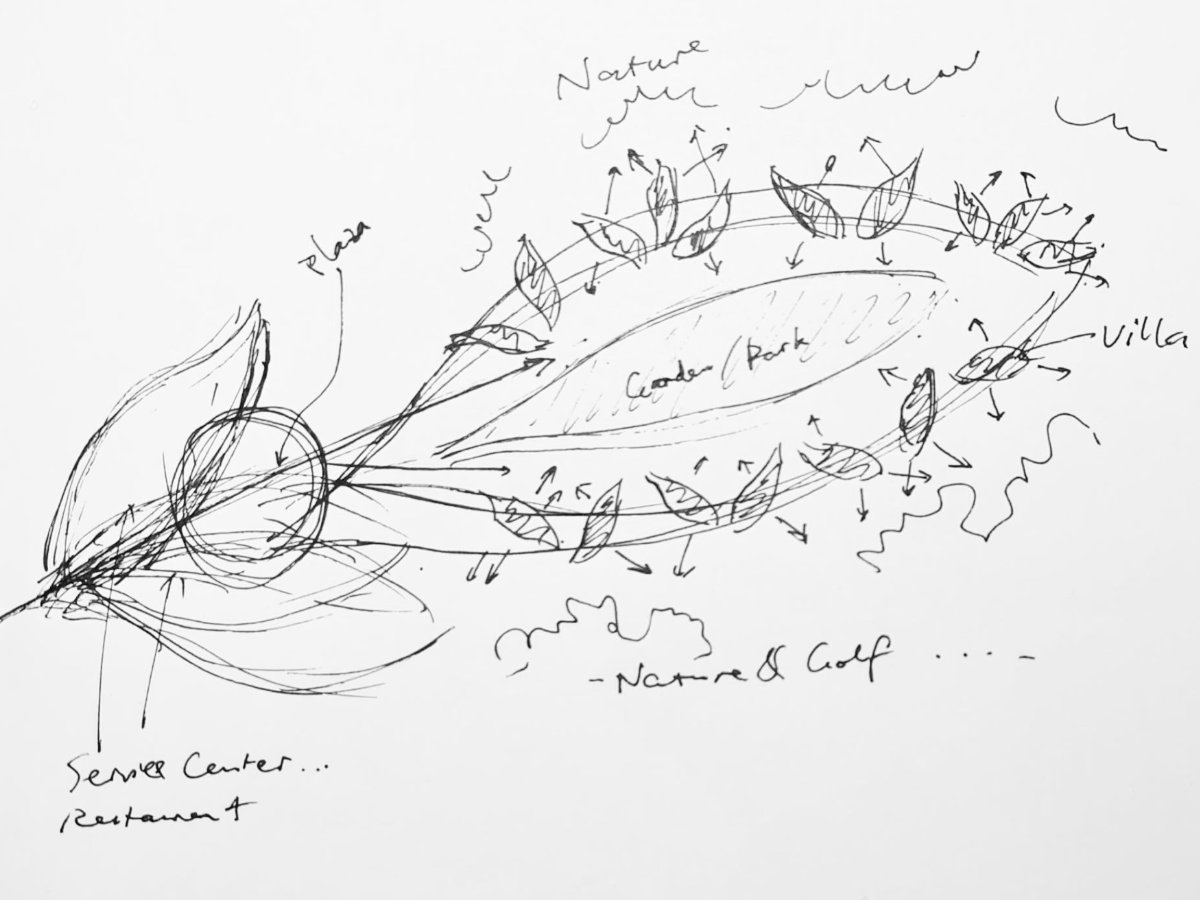 Nature
plaza
Garden/Park
Villa
-Nature & Golf ....-
Service Center...
Restaurant